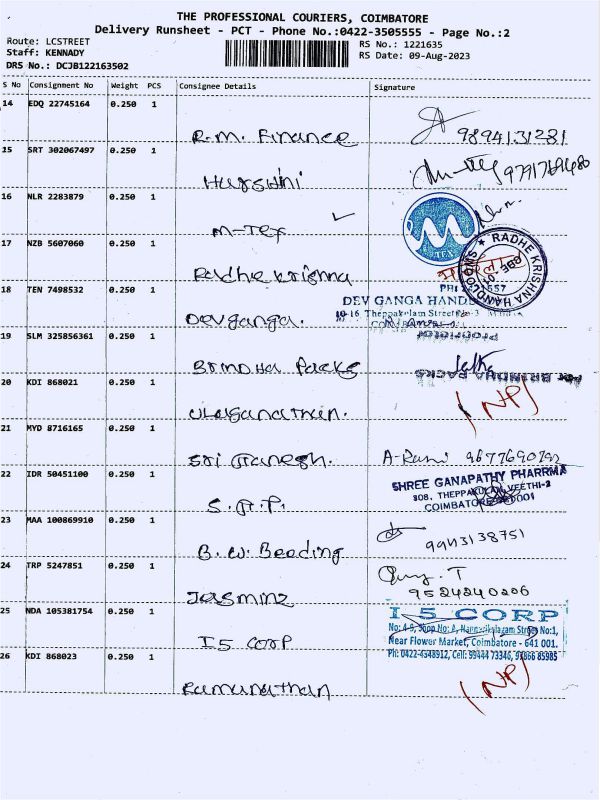 THE PROFESSIONAL COURIERS, COIMBATORE
Delivery Runsheet - PCT - Phone No.:0422-3505555 - Page No.:2
Route: LCSTREET
Staff: KENNADY
DRS No.: DCJB122163502
RS No.: 1221635
RS Date: 09-Aug-2023
S No Consignment No Weight PCS Consignee Details Signature
14 EDQ 22745164 0.250 1
R.M. Finance 9894131281
15 SRT 302067497 0.250 1
Hursuhi
16 NLR 2283879 0.250 1
M-Tex
M TEX
17 NZB 5607060 0.250 1
Radhe Krishna
RADHE KRISHNA HANDLOOMS
18 TEN 7498532 0.250 1
DEV GANGA
Theppakulam Street
Devganga.
19 SLM 325856361 0.250 1
Brindha Packs
20 KDI 868021 0.250 1
(NP)
Ulaganathan.
21 MYD 8716165 0.250 1
Sri Ganesh. A-Rani 9677690792
22 IDR 50451100 0.250 1
SHREE GANAPATHY PHARRMA
308, THEPPAKULAM VEETHI-2
COIMBATORE
S.G.P.
23 MAA 100869910 0.250 1
9943138751
B.W. Beeding
24 TRP 5247851 0.250 1
9524240206
Jasmine
25 NDA 105381754 0.250 1
I 5 CORP
Shop No: A, Street No:1,
Near Flower Market, Coimbatore - 641 001.
Ph: 0422-4348912, Cell: 99444 73346, 97866 85985
I5 CORP
26 KDI 868023 0.250 1
(NP)
Ramanathan